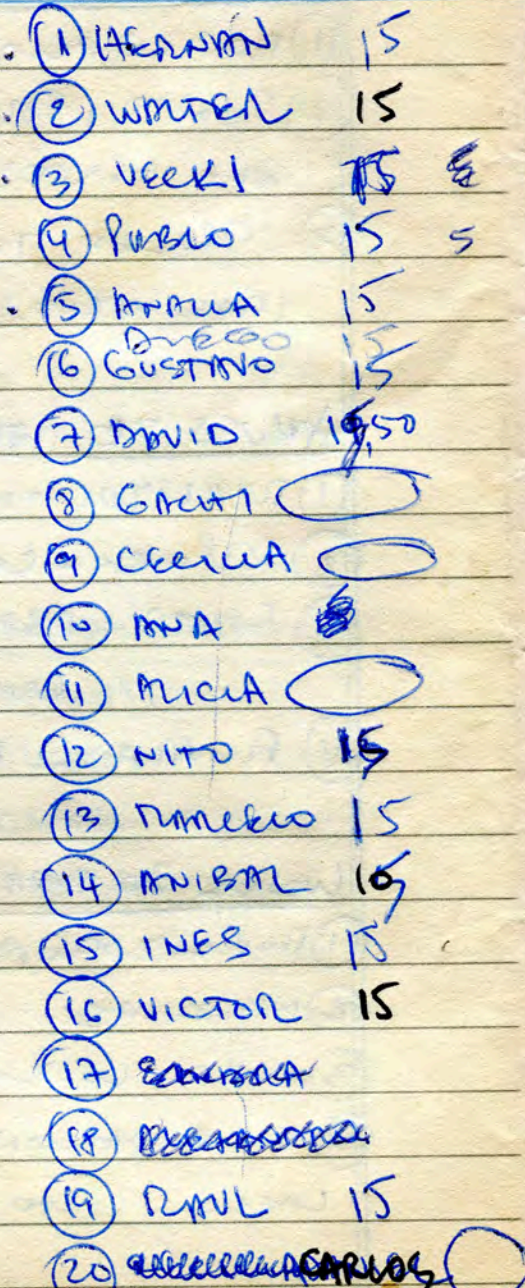 ① HERNAN 15
② WALTER 15
③ VECKI 15
④ PABLO 15 5
⑤ ANALIA 15
DIEGO 15
⑥ GUSTAVO 15
⑦ DAVID ,50
⑧ GACHI
⑨ CECILIA
⑩ ANA
⑪ ALICIA
⑫ NITO 15
⑬ MARCELO 15
⑭ ANIBAL
⑮ INES 15
⑯ VICTOR 15
⑰
⑱
⑲ RAUL 15
⑳ CARLOS